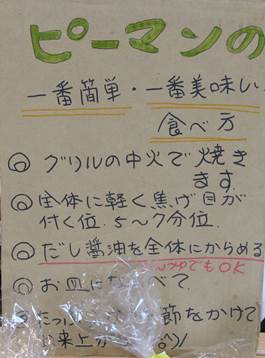 ピーマンの
一番簡単・一番美味しい
食べ方
◎ グリルの中火で焼き
ます
◎ 全体に軽く焦げ目が
付く位. 5〜7分位.
◎ だし醤油を全体にからめる
つゆでもOK
◎ お皿にならべて
節をかけて
出来上が